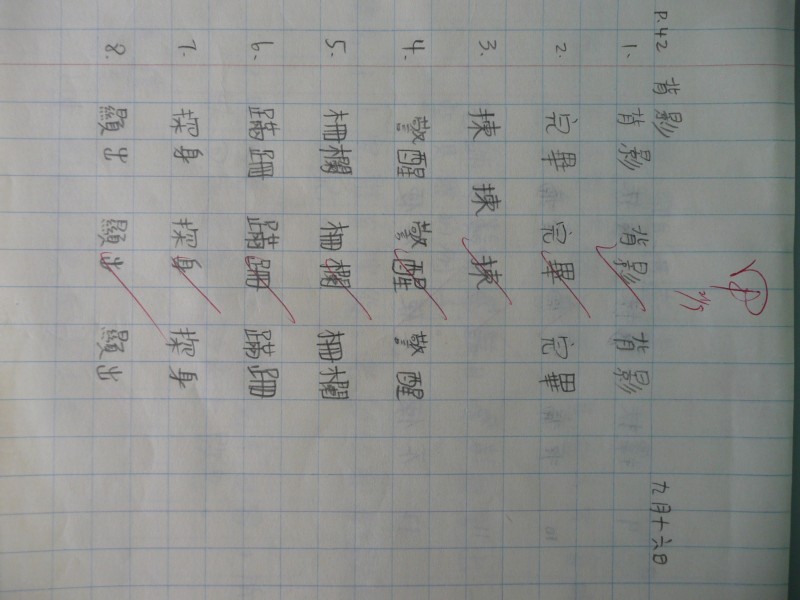 P.42 背影 九月十六日
1. 背影 背影 背影
2. 完畢 完畢 完畢
3. 揀 揀 揀
4. 警醒 警醒 警醒
5. 柵欄 柵欄 柵欄
6. 蹣跚 蹣跚 蹣跚
7. 探身 探身 探身
8. 顯出 顯出 顯出